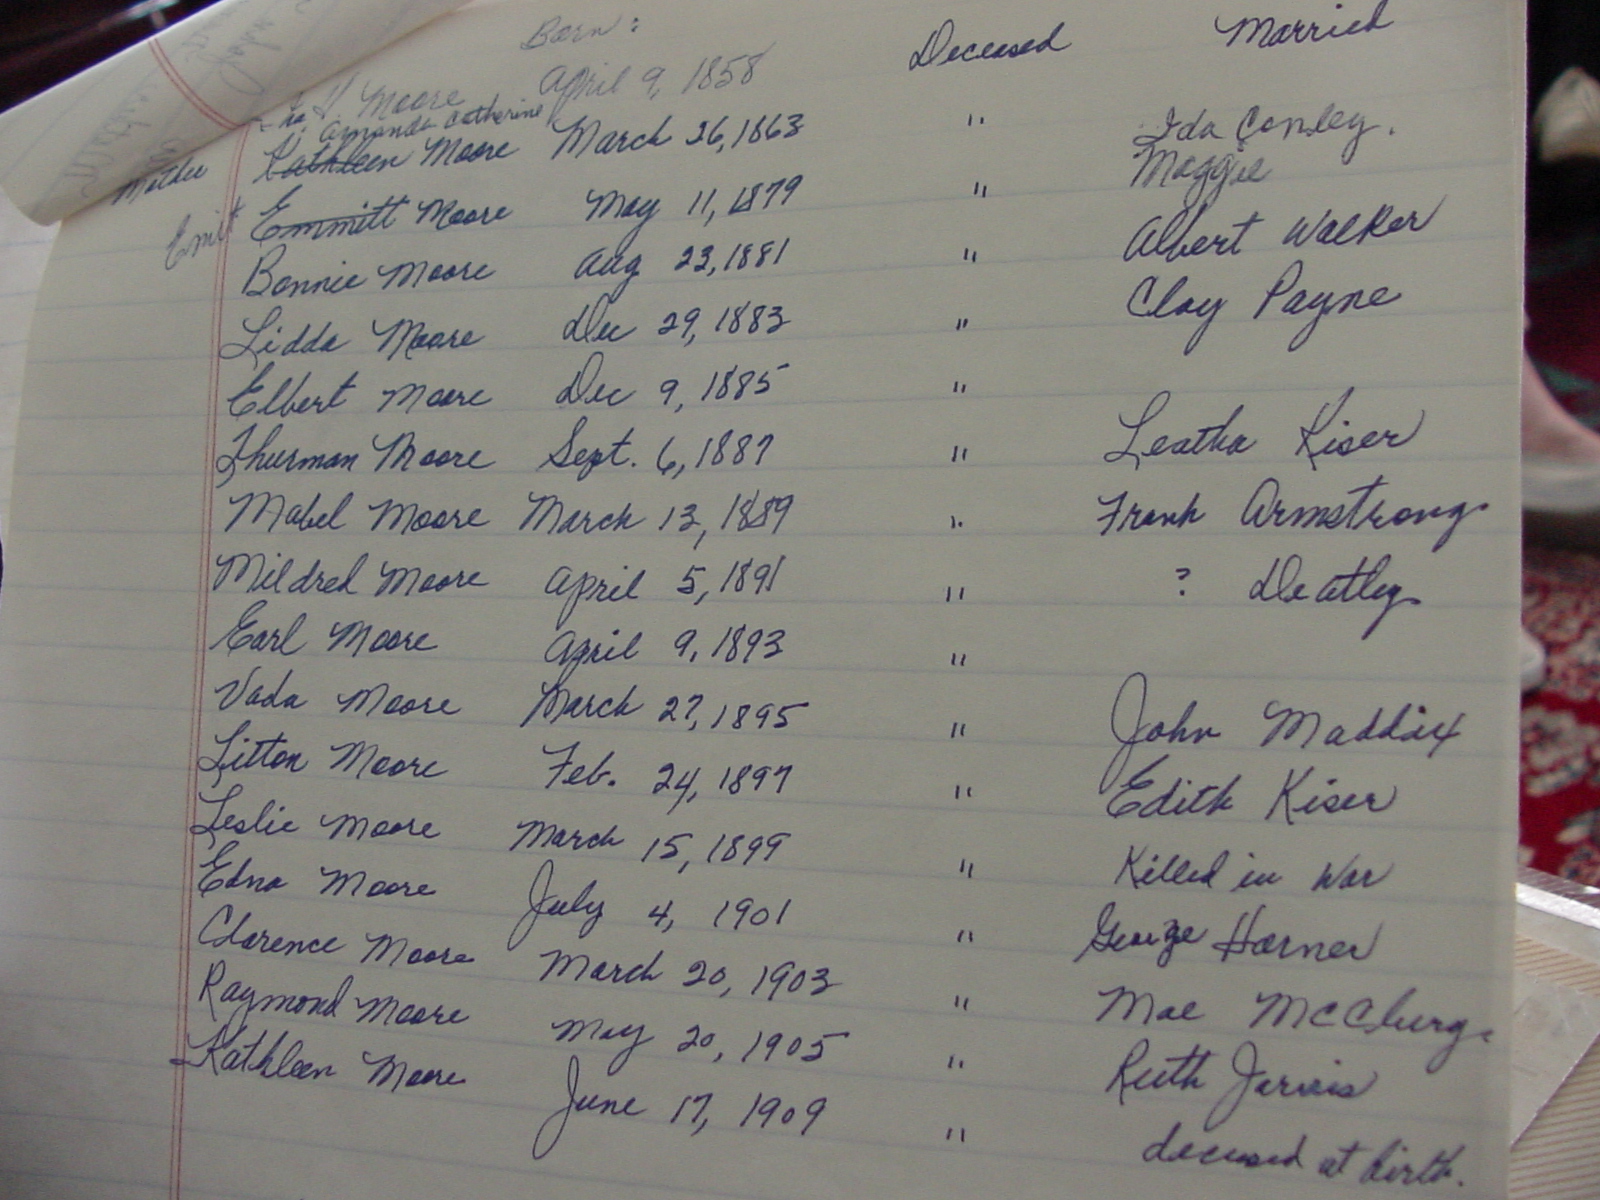 Born: Deceased Married
H Moore April 9, 1858
Amanda Catherine
Mother Kathleen Moore March 26, 1863 " Ida Conley.
Maggie
Emit Emmitt Moore May 11, 1879 "
Bonnie Moore Aug 23, 1881 " Albert Walker
Lidda Moore Dec 29, 1883 " Clay Payne
Elbert Moore Dec 9, 1885 "
Thurman Moore Sept. 6, 1887 " Leatha Kiser
Mabel Moore March 13, 1889 " Frank Armstrong
Mildred Moore April 5, 1891 " ? Deatley
Earl Moore April 9, 1893 "
Vada Moore March 27, 1895 " John Maddix
Litton Moore Feb. 24, 1897 " Edith Kiser
Leslie Moore March 15, 1899 " Killed in War
Edna Moore July 4, 1901 " George Horner
Clarence Moore March 20, 1903 " Mae McClurg
Raymond Moore May 20, 1905 " Ruth Jarvis
Kathleen Moore June 17, 1909 " deceased at birth.